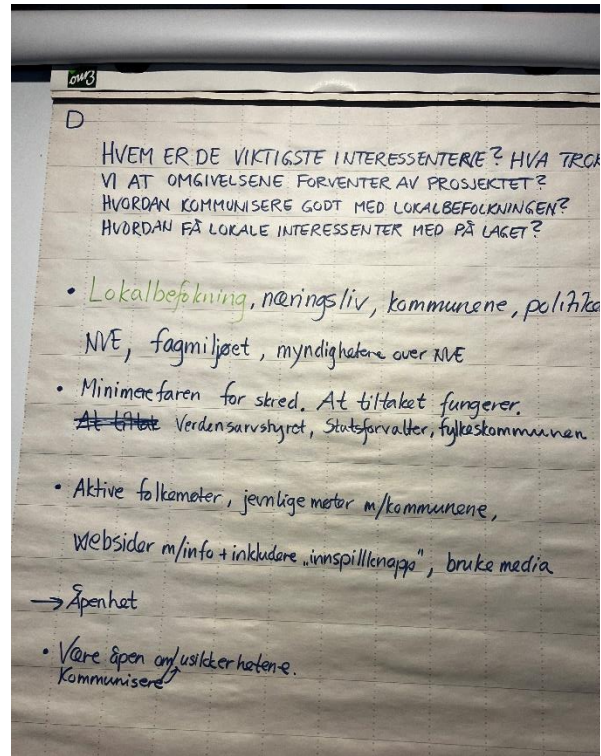 D
HVEM ER DE VIKTIGSTE INTERESSENTENE? HVA TROR
VI AT OMGIVELSENE FORVENTER AV PROSJEKTET?
HVORDAN KOMMUNISERE GODT MED LOKALBEFOLKNINGEN?
HVORDAN FÅ LOKALE INTERESSENTER MED PÅ LAGET?
• Lokalbefolkning, næringsliv, kommunene,
NVE, fagmiljøet, myndighetene over NVE
• Minimere faren for skred. At tiltaket fungerer.
Verdensarvstyret, Statsforvalter, fylkeskommunen
• Aktive folkemøter, jevnlige møter m/kommunene,
websider m/info + inkludere "innspillknapp", bruke media
→ Åpenhet
• Være åpen om/usikkerhetene.
Kommunisere